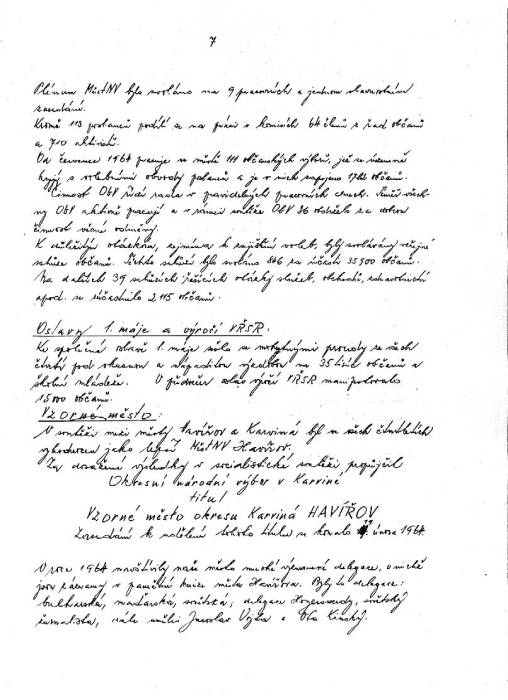 7
Plénum MěstNV bylo svoláno na 9 pracovních a jednom slavnostním
zasedání.
Kromě 113 poslanců podílí se na práci v komisích 64 členů z řad občanů
a 710 aktivistů.
Od července 1964 pracuje ve městě 111 občanských výborů, jež se územně
kryjí s volebními obvody poslanců a je v nich zapojeno 1722 občanů.
Činnost ObV řídí rada v pravidelných pracovních dnech. Téměř všech-
ny ObV aktivně pracují a v rámci soutěže ObV 36 obdrželo za dobrou
činnost věcné odměny.
K důležitým otázkám, zejména k zajištění voleb, byly svolávány veřejné
schůze občanů. Těchto schůzí bylo svoláno 846 za účasti 35900 občanů.
Na dalších 39 schůzích řešících otázky služeb, obchodu, zdravotnictví
apod. se zúčastnilo 2 115 občanů.
Oslavy 1. máje a výročí VŘSR.
Ke společné oslavě 1. máje sešlo se mohutnými proudy ze všech
čtvrtí pod vkusnou a nápaditou výzdobou na 35 tisíc občanů a
školní mládeže. V průvodu oslav výročí VŘSR manifestovalo
15 000 občanů.
Vzorné město:
V soutěži mezi městy Havířov a Karviná byl ve všech čtvrtletích
vyhodnocen jako lepší MěstNV Havířov.
Za dosažené výsledky v socialistické soutěži propůjčil
Okresní národní výbor v Karviné
titul
Vzorné město okresu Karviná HAVÍŘOV
Zasedání k udělení tohoto titulu se konalo února 1964.
V roce 1964 navštívily naše město mnohé významné delegace, o nichž
jsou záznamy v pamětní knize města Havířova. Byly to delegace:
bulharská, maďarská, sovětská, delegace Hoyerswerdy, sovětský
žurnalista, dále umělci Jaroslav Vojta a Ota Kinský.